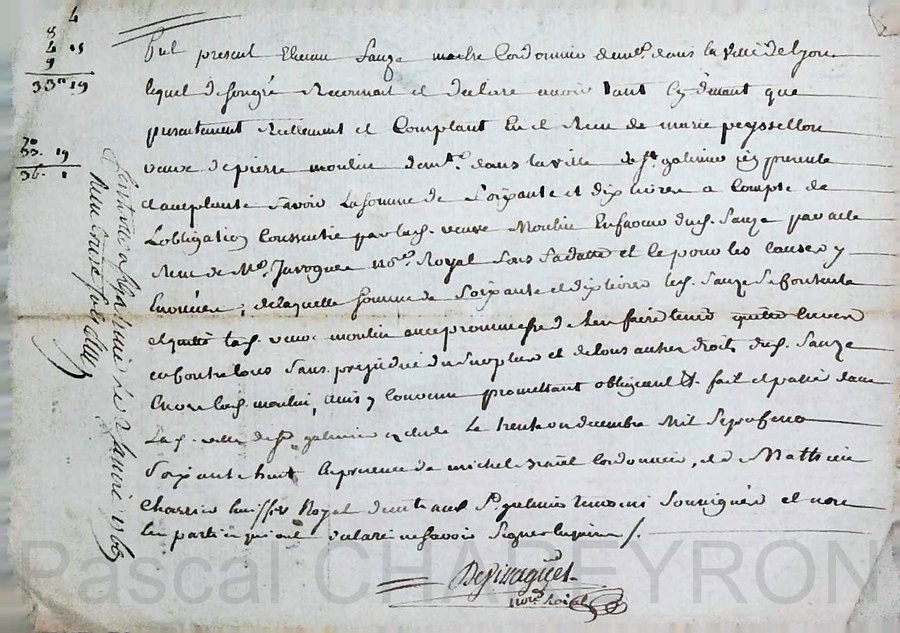 4
8
4 15
9
33 19
30
33. 19
36. 1
fut present Etienne Sauze maitre Cordonnier demt. dans la ville de Lyon
lequel de son gré Reconnait et declare avoir tant cy devant que
presentement Reellement et Comptant Eu et Receu de marie peyssellon
veuve de pierre moulin demt. dans la ville de St. galmier icy presente
et acceptante Savoir La somme de Soixante et dix livres a Compte de
L'obligation Consentie par lad. veuve Moulin En faveur dud. Sauze par acte
Receu de Me. Javogues nore. Royal sous sa datte et ce pour les causes y
Enoncées, de laquelle somme de Soixante et dix livres led. Sauze se contente
et quitte lad. veuve moulin avec promesse de l'en faire tenir quitte Envers
et contre tous Sans prejudice du Surplus et de tous autres droits dud. Sauze
Contre lad. moulin, ainsy Convenu promettant obligeant &. fait et passé dans
Lad. ville de St. galmier Le trente un decembre Mil Sept cent
Soixante huit En presence de michel Cordonnier, et de Mathieu
Charrier huissier Royal demt. aud. St. galmier temoins Soussignés et non
les parties qui ont declaré ne savoir Signer
nore. Roial
Controllé a St. galmier le 2 Janvier 1769
Receu
Pascal CHAPEYRON